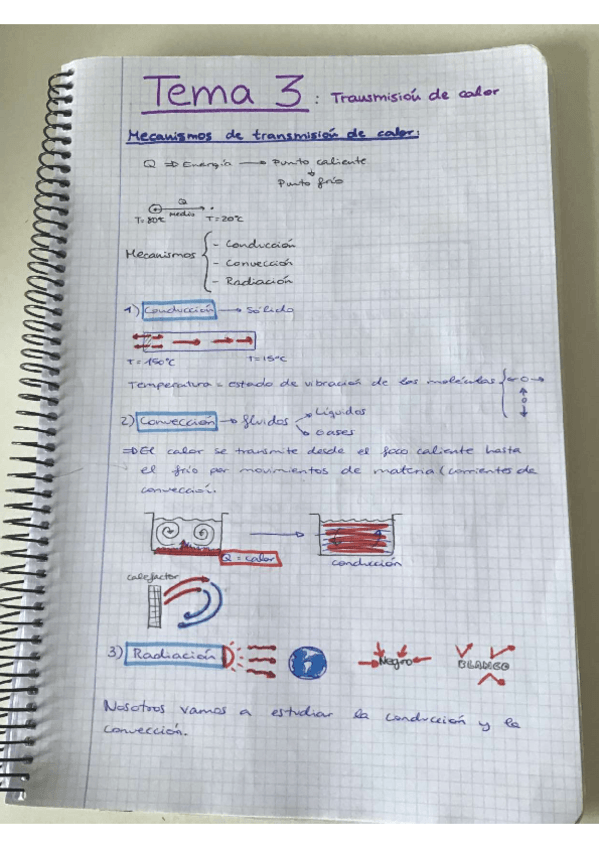 Tema 3: Transmisión de calor
Mecanismos de transmisión de calor:
Q ⇒ Energía → Punto caliente
↓
Punto frío
Q
Medio
T=80°C T=20°C
Mecanismos { - Conducción
- Convección
- Radiación
1) Conducción → sólido
T=150°C T=15°C
Temperatura = estado de vibración de las moléculas
2) Convección → fluidos
Líquidos
Gases
⇒ El calor se transmite desde el foco caliente hasta
el frío por movimientos de materia (corrientes de
convección.
Q = calor
conducción
calefactor
3) Radiación
Negro
BLANCO
Nosotros vamos a estudiar la conducción y la
convección.